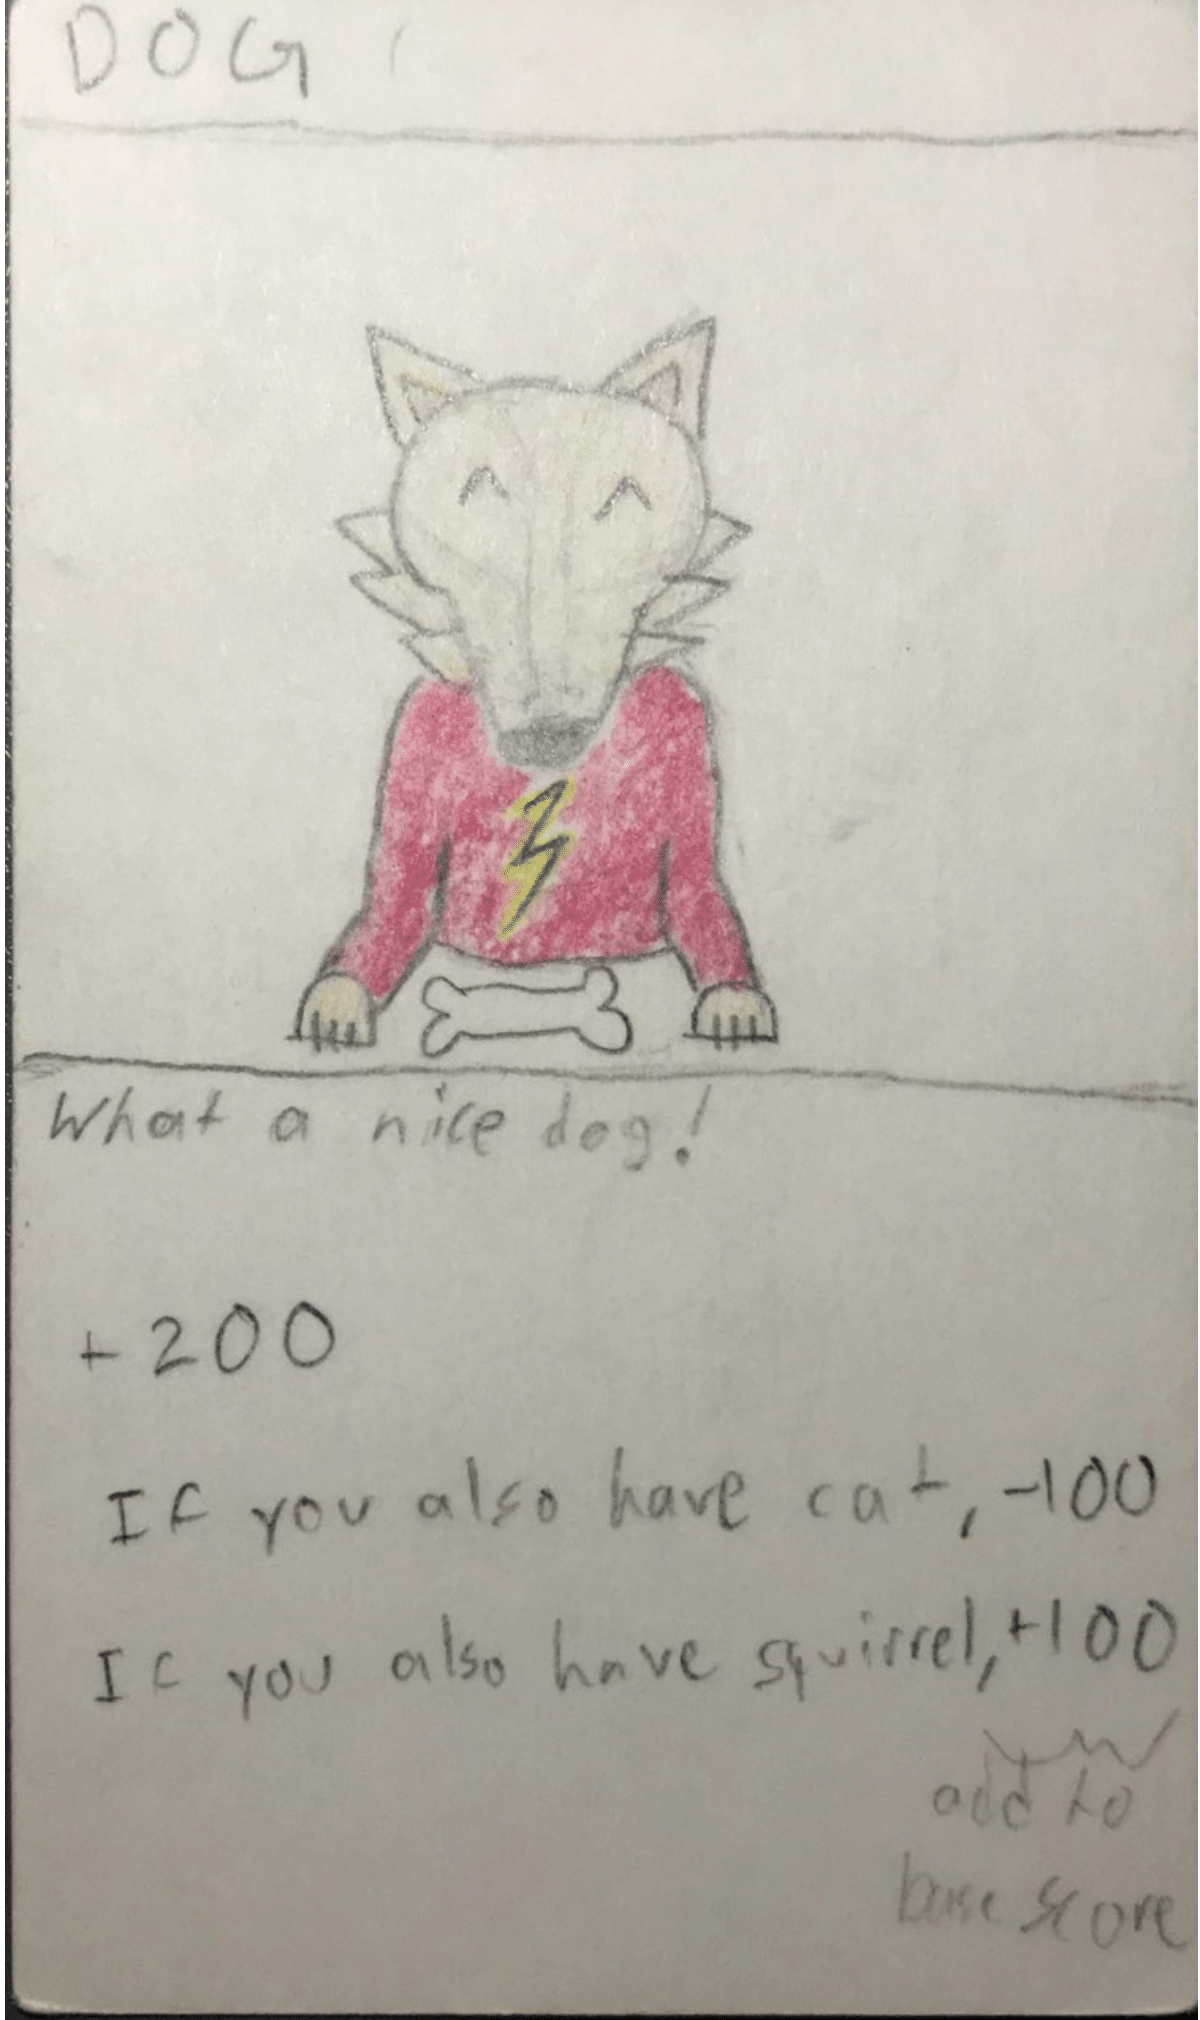 DOG
What a nice dog!
+200
If you also have cat, -100
If you also have squirrel, +100
add to
base score